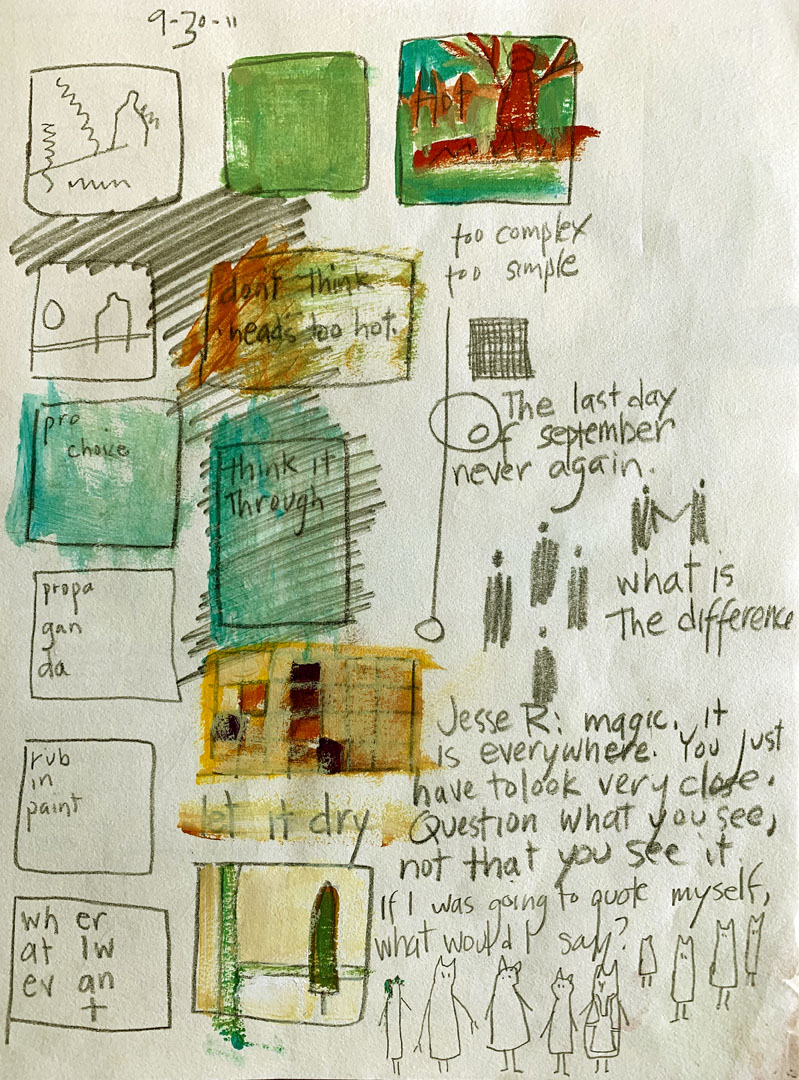 9-30-11
5 min
Hot
too complex
too simple
don't think
heads too hot.
The last day
of september
never again.
pro
choice
think it
Through
what is
The difference
propa
gan
da
Jesse R: magic. it
is everywhere. You just
have to look very close.
Question what you see,
not that you see it.
rub
in
paint
let it dry
If I was going to quote myself,
what would I say?
wh er
at Iw
ev an
t